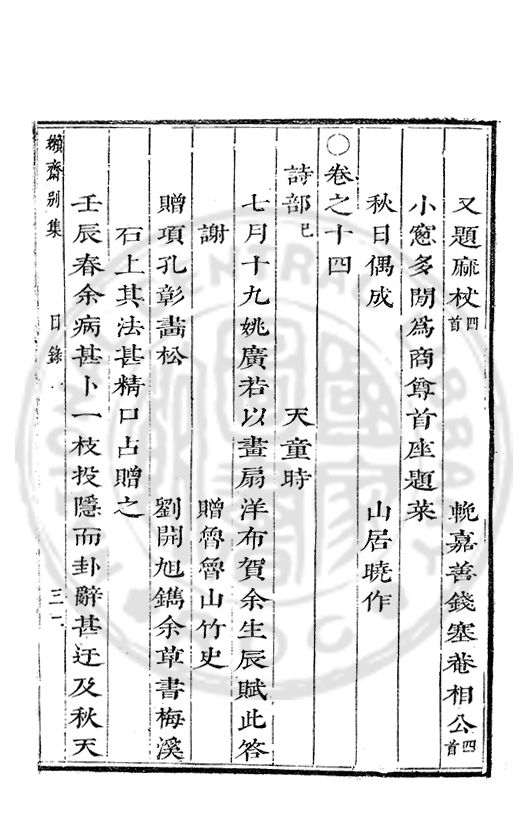 又題麻杖四首 輓嘉善錢塞菴相公四首
小窻多閒爲商尊首座題菜
秋日偶成 山居曉作
○卷之十四
詩部已 天童時
七月十九姚廣若以畫扇洋布賀余生辰賦此答
謝 贈魯魯山竹史
贈項孔彰畵松 劉開旭鐫余草書梅溪
石上其法甚精口占贈之
壬辰春余病甚卜一枝投隱而卦辭甚迂及秋天
嬾齋別集 目錄 三一